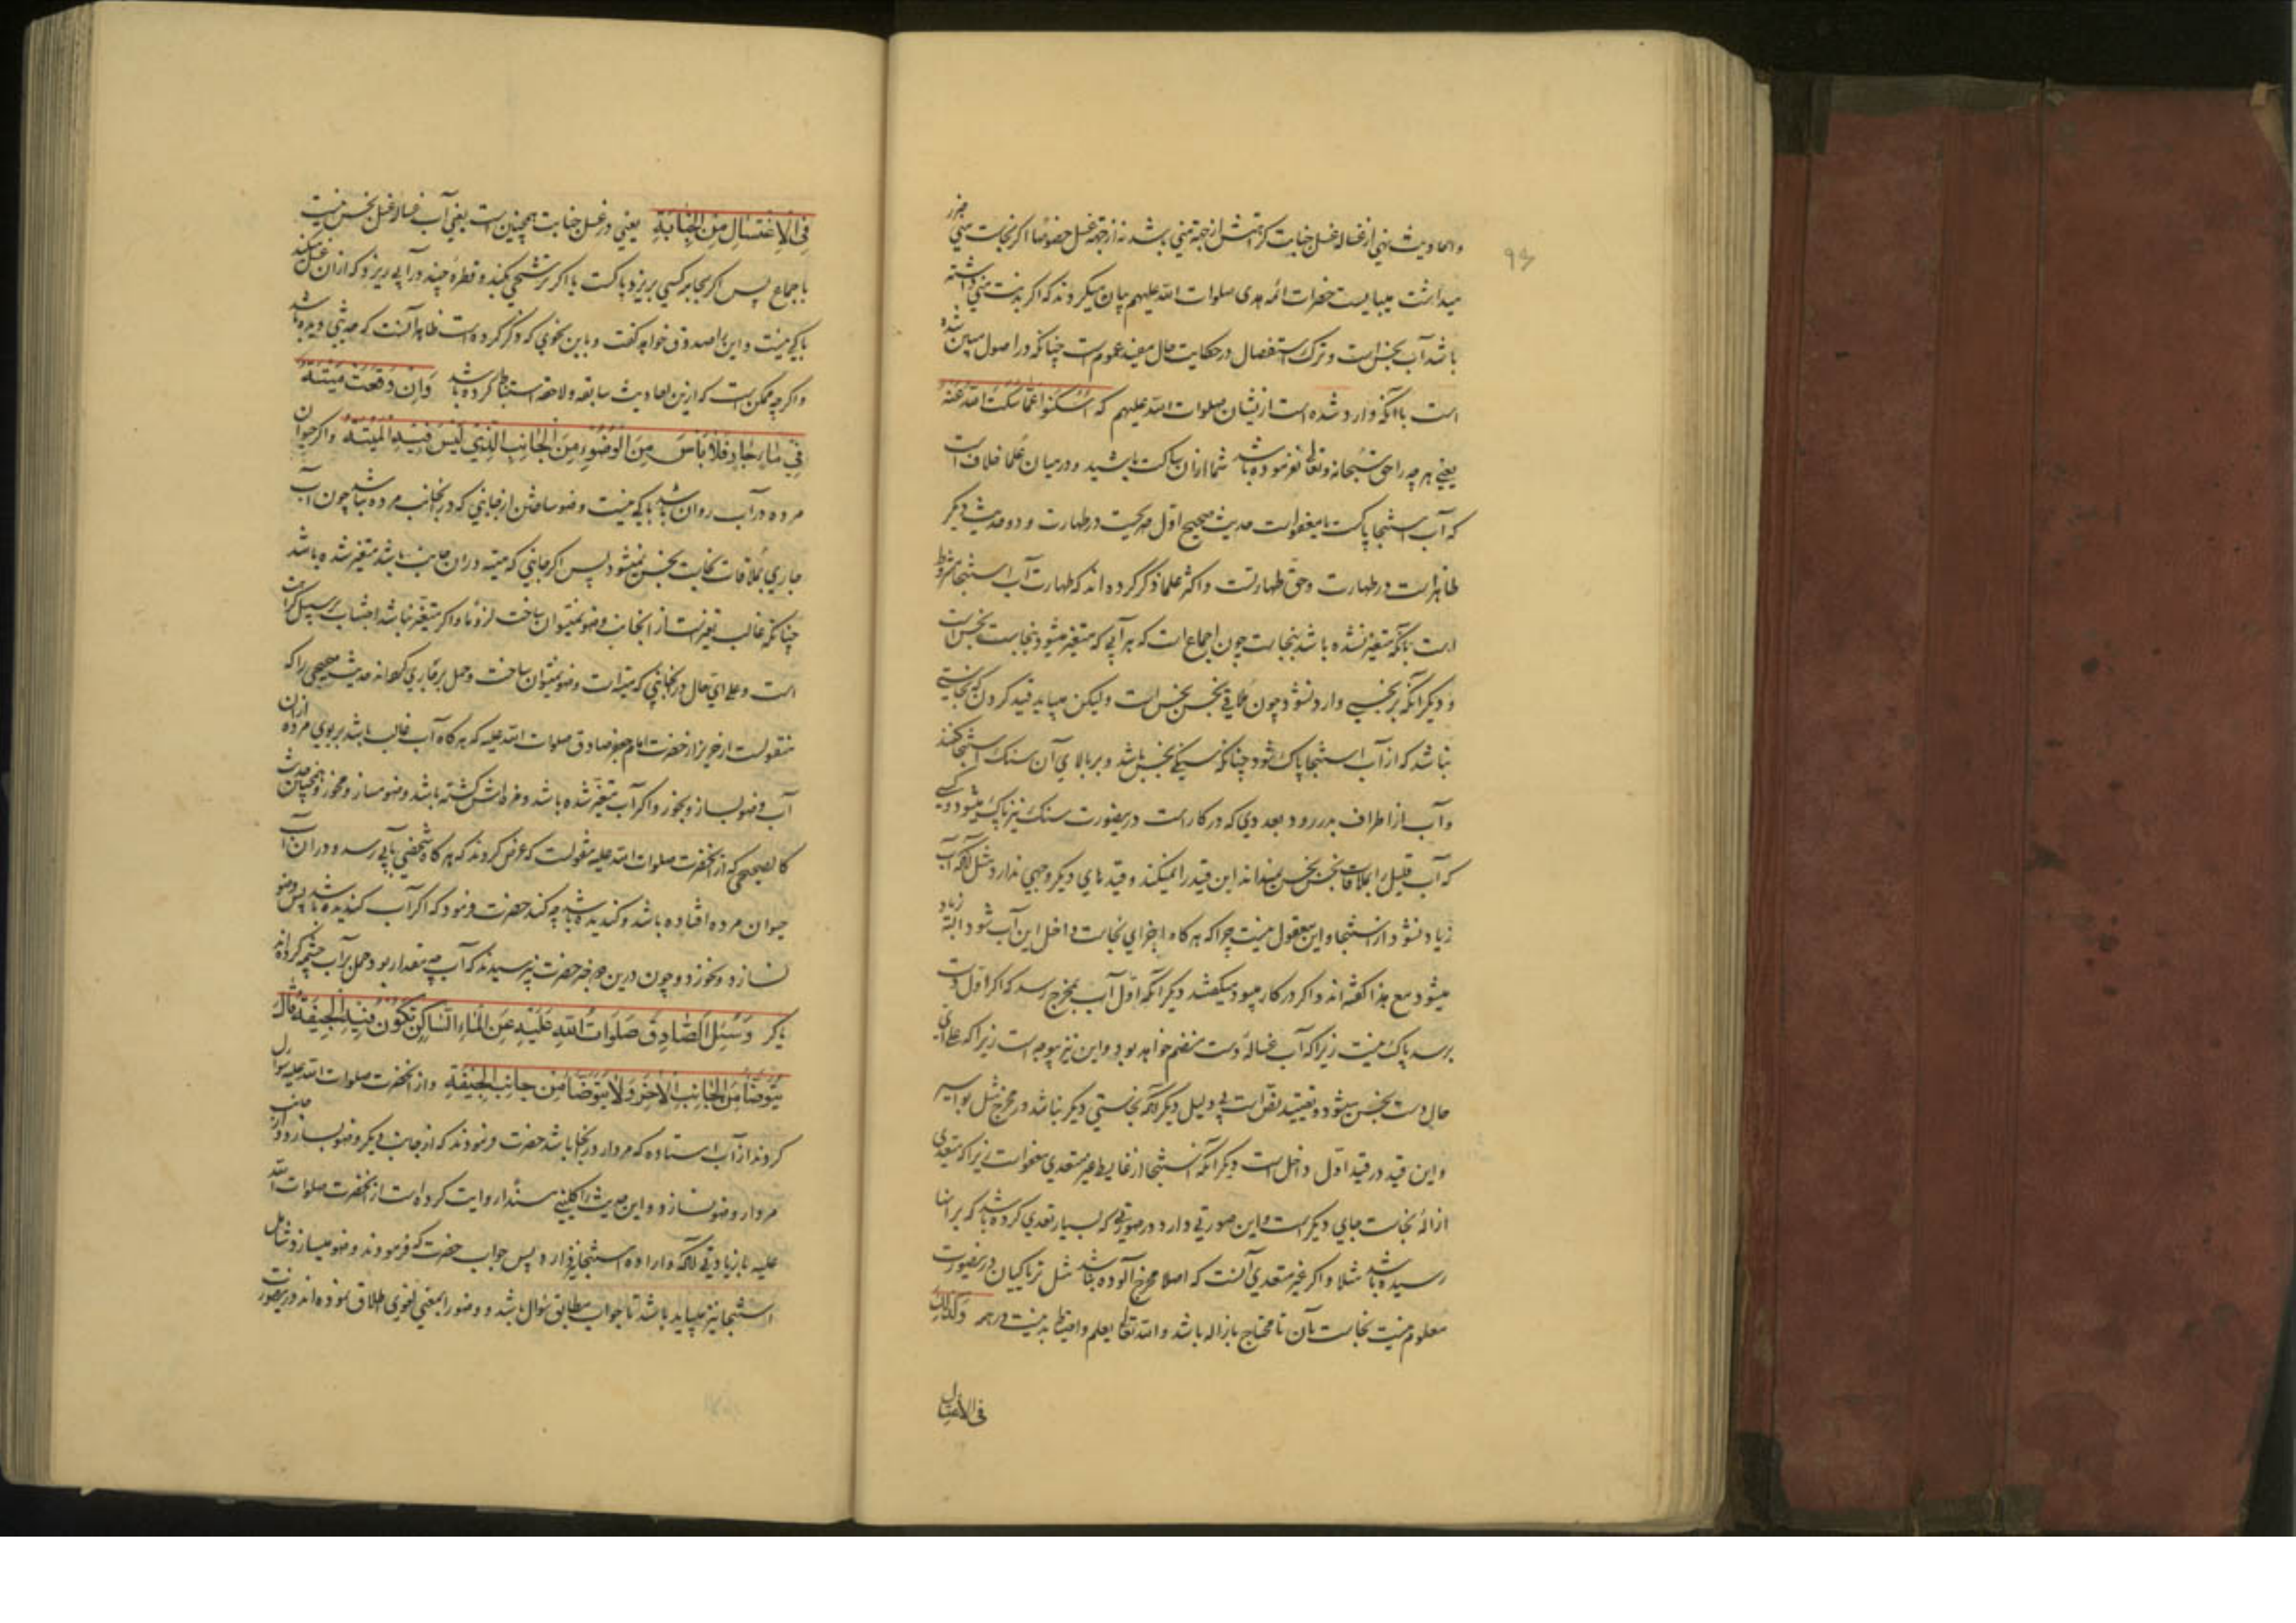 93
و احادیث نهی از غساله غسل جنابت کراهتش از جهة منی باشد نه از جهة غسل خصوصا اگر نجاست منی ضرر
میداشت میبایست حضرات ائمه هدی صلوات الله علیهم بیان میکردند که اگر بدنت منی داشته
باشد آب نجس است و ترک استفصال در حکایت حال مفید عموم است چنانکه در اصول مبین شده
است با آنکه وارد شده است از ایشان صلوات الله علیهم که اُسْکُتُوا عَمّا سَکَتَ اللهُ عَنْهُ
یعنی هر چه را حق سبحانه و تعالی نفرموده باشد شما از آن ساکت باشید و در میان علما خلاف است
که آب استنجا پاکست یا معفو است حدیث صحیح اول صریحست در طهارت و دو حدیث دیگر
ظاهر است در طهارت و حق طهارتست و اکثر علما ذکر کرده اند که طهارت آب استنجا مشروط
است بآنکه متغیر نشده باشد بنجاست چون اجماع است که هر آبی که متغیر میشود بنجاست نجس است
و دیگر آنکه بر نجسی وارد نشود چون ملاقی نجس نجس است و لیکن میباید قید کردن که نجاستی
نباشد که از آب استنجا پاک شود چنانکه سنگی نجس باشد و بر بالای آن سنگ استنجا کنند
و آب از اطراف بدر رود بعد دی که در کار است درینصورت سنگ نیز پاک میشود و کسی
که آب قلیل را بملاقات نجس نجس نمیداند این قید را نمیکند و قیدهای دیگر وجهی ندارد مثل آنکه آب
زیاد نشود از استنجا و این معقول نیست چرا که هر گاه اجزای نجاست داخل این آب شود البته زیاد
میشود مع هذا گفته اند و اگر در کار میبود میگفتند دیگر آنکه اول آب بمخرج رسد که اگر اول دست
برسد پاک نیست زیرا که آب غساله دست منضم خواهد بود و این نیز بیوجه است زیرا که علی ای
حال دست نجس میشود و تقیید نص است بی دلیل دیگر آنکه نجاستی دیگر نباشد در مخرج مثل بواسیر
و این قید در قید اول داخل است دیگر آنکه استنجا از غایط غیر متعدی معفو است زیرا که متعدی
ازاله نجاست جای دیگر است و این صورتی دارد در صورتی که بسیار تعدی کرده باشد که بر انها
رسیده باشد مثلا و اگر غیر متعدی آنست که اصلا مخرج آلوده نباشد مثل تریاکیان درینصورت
معلوم نیست نجاست آن تا محتاج بازاله باشد و الله تعالی یعلم و احتیاط بد نیست در همه وَکَذلِکَ
فی الاغتسال
فِی الْاِغْتِسالِ مِنَ الْجَنابَةِ یعنی در غسل جنابت همچنین است یعنی آب غساله غسل نجس نیست
باجماع پس اگر بجابر کسی بریزد پاکست یا اگر ترشحی بکند و قطره چند در آبی ریزد که از آن غسل میکند
باکی نیست و این را صدوق خواهد گفت و باین نحوی که ذکر کرده است ظاهرا آنست که حدیثی دیده باشد
و اگر چه ممکن است که ازین احادیث سابقه و لاحقه استنباط کرده باشد وَاِنْ وَقَعَتْ مَیْتَةٌ
فِی ماءٍ جارٍ فَلا بَأْسَ مِنَ الْوُضُوءِ مِنَ الْجانِبِ الَّذِی لَیْسَ فِیهِ الْمَیْتَةُ و اگر حیوان
مرده در آب روان باشد باکی نیست وضو ساختن از جانبی که در انجانب مرده نباشد چون آب
جاری بملاقات نجاست نجس نمیشود پس اگر جانبی که میته در ان جانب باشد متغیر شده باشد
چنانکه غالب تغیر است از انجانب وضو نمیتوان ساخت لزوما و اگر متغیر نباشد اجتناب بر سبیل کراهت
است و علی ای حال در انجانبی که میته است وضو نمیتوان ساخت و حمل بر جاری کرده‌اند حدیث صحیحی را که
منقولست از حریز از حضرت امام جعفر صادق صلوات الله علیه که هر گاه آب غالب باشد بر بوی مرده از ان
آب وضو بساز و بخور و اگر آب متغیر شده باشد و مزه اش گشته باشد وضو مساز و مخور و همچنین حدیث
کالصحیحی که از انحضرت صلوات الله علیه منقولست که عرض کردند که هر گاه شخصی بآبی رسد و در ان آب
حیوان مرده افتاده باشد و گندیده باشد چه کند حضرت فرمود که اگر آب گندیده باشد پس وضو
نسازد و نخورد و چون درین دو خبر حضرت نپرسیدند که آب چه مقدار بود حمل بر آب چشمه کرده اند
یا کر وَسُئِلَ الصّادِقُ صَلَواتُ اللهِ عَلَیْهِ عَنِ الْماءِ السّاکِنِ تَکُونُ فِیهِ الْجِیفَةُ قالَ
یَتَوَضَّأُ مِنَ الْجانِبِ الْآخَرِ وَلا یَتَوَضَّأُ مِنْ جانِبِ الْجِیفَةِ و از انحضرت صلوات الله علیه سؤال
کردند از آب استاده که مردار در انجا باشد حضرت فرمودند که از جانب دیگر وضو بسازد و از جانب
مردار وضو نسازد و این حدیث را کلینی مسندا روایت کرده است از انحضرت صلوات الله
علیه با زیادتی آنکه و اراده استنجا نیز دارد پس جواب حضرت که فرمودند وضو میسازد شامل
استنجا نیز میباید باشد تا جواب مطابق سؤال باشد و وضو را بمعنی لغوی اطلاق نموده اند درینصورت